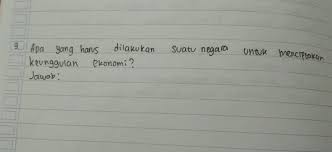 9. Apa yang harus dilakukan suatu negara untuk menciptakan
keunggulan ekonomi?
Jawab: